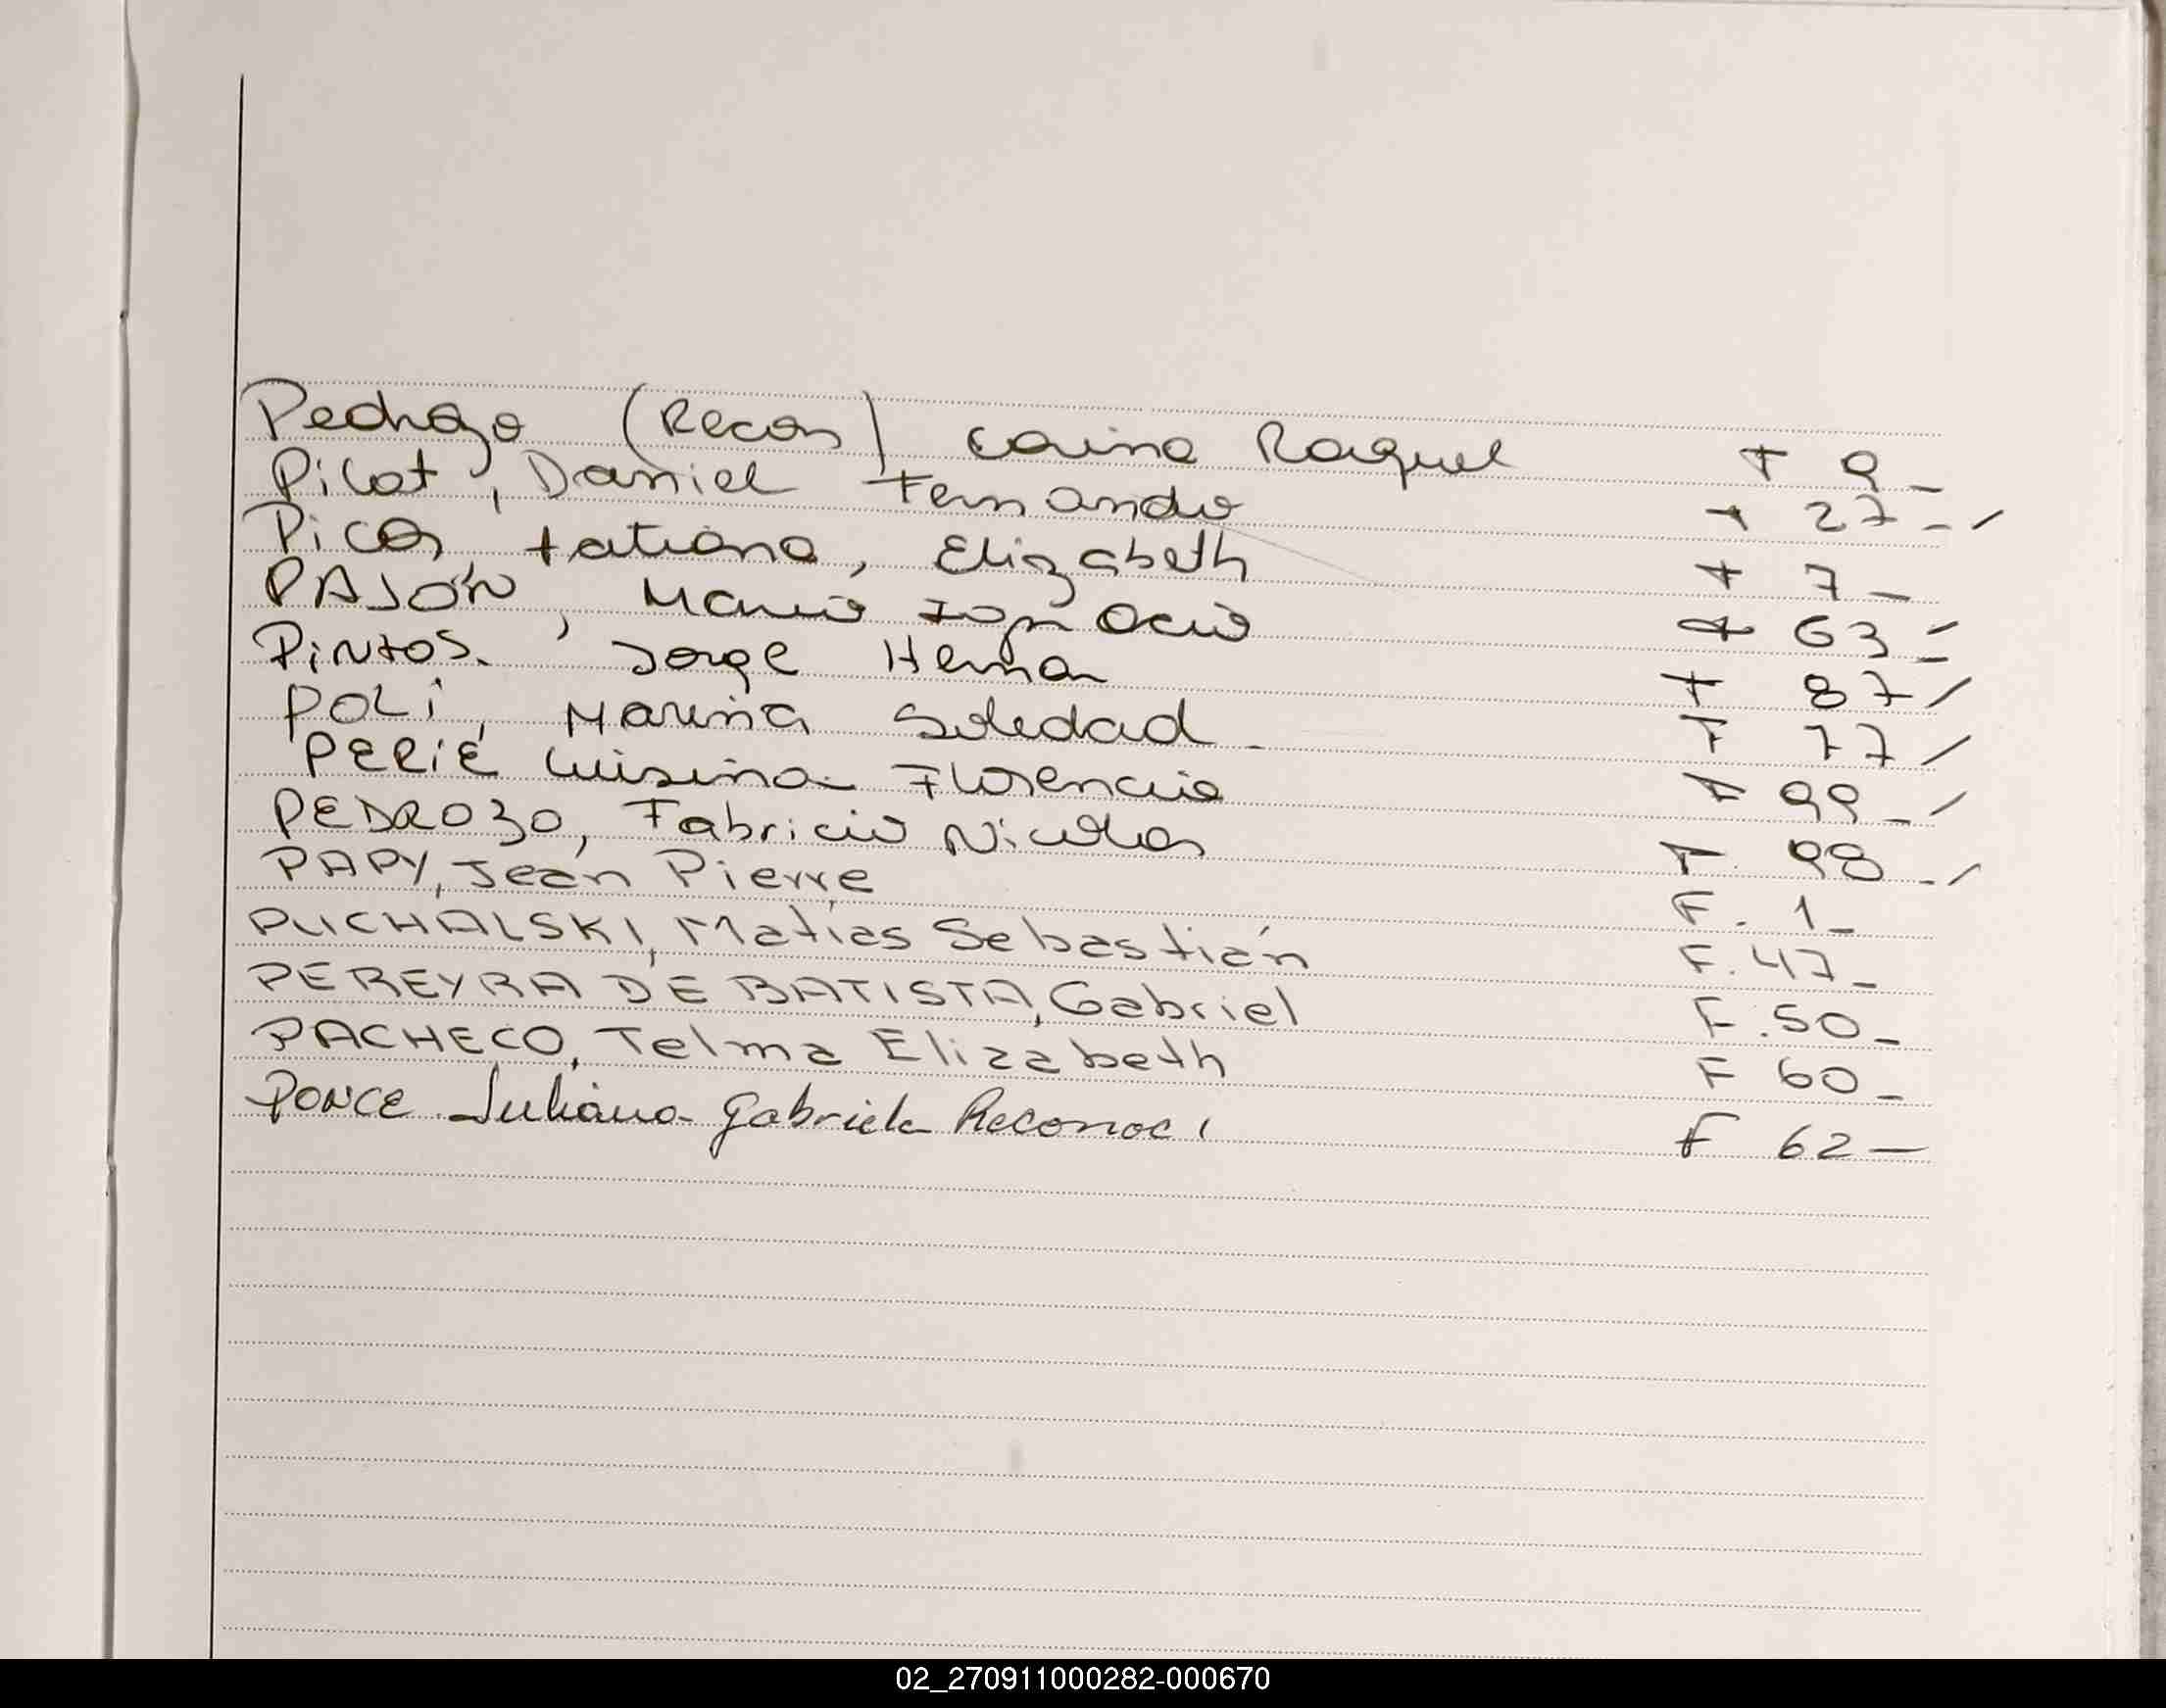 Pedrazo (Recon) Carina Raquel F 9_
Pilot, Daniel Fernando F 27_ /
Picon, Tatiana, Elizabeth F 7_
PAJÓN, Mario Ignacio F 63_ /
PINTOS, Jorge Hernan F 87 /
POLI, Marina Soledad F 77 /
PERIÉ Luisina Florencia F 99_ /
PEDROZO, Fabricio Nicolas F. 98_ /
PAPY, Jean Pierre F. 1_
PUCHALSKI, Matías Sebastián F. 47_
PEREYRA DE BATISTA, Gabriel F. 50_
PACHECO, Telma Elizabeth F 60_
PONCE Juliana Gabriela Reconoc. F 62_
02_270911000282-000670